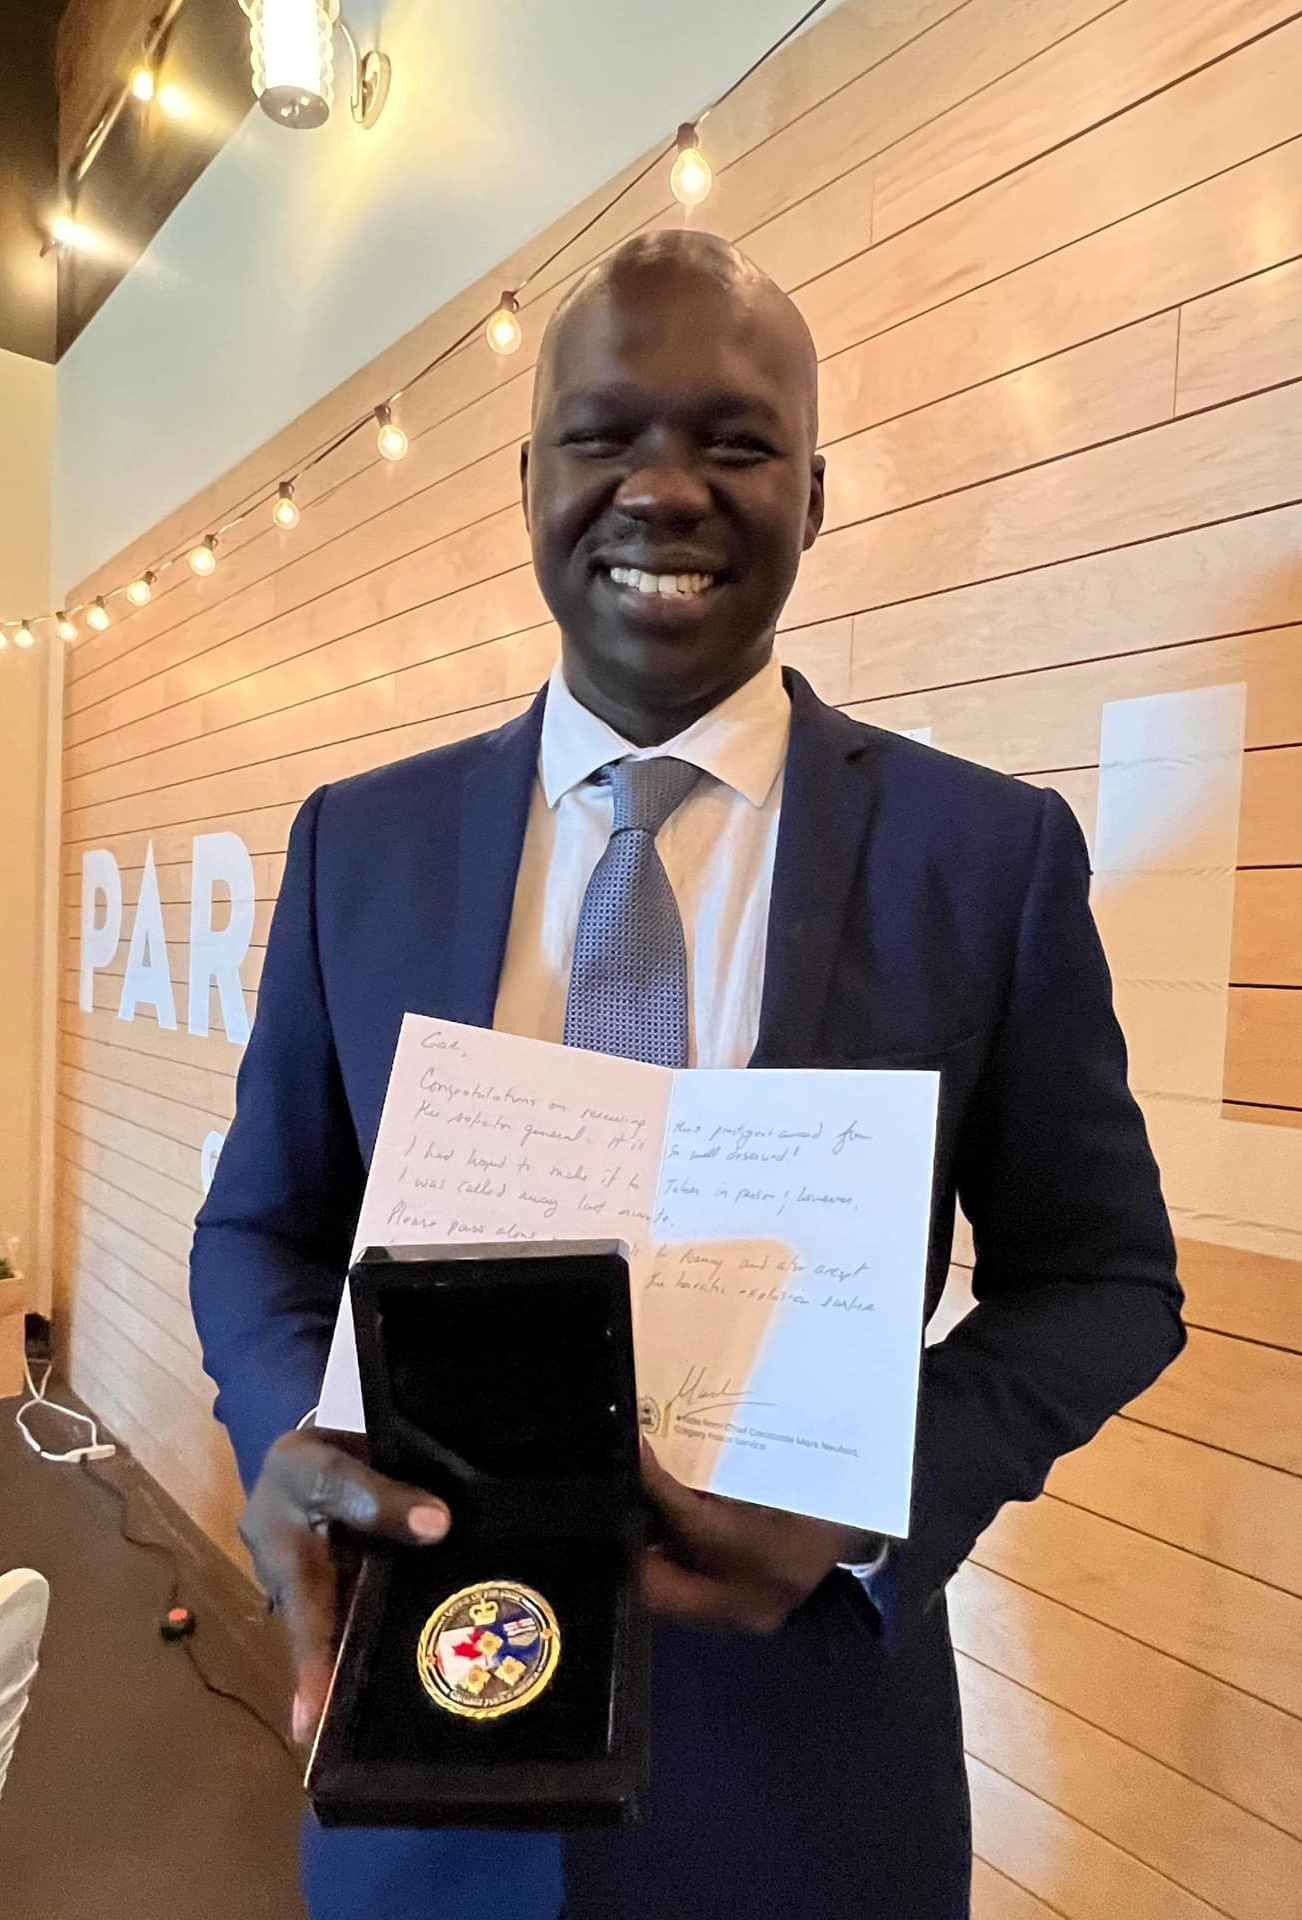 PAR
Congratulations on receiving this prestigious award from
the solicitor general. It is so well deserved!
I had hoped to make it to Taber in person; however,
I was called away last minute.
Please pass along to and also accept
the horrific explosion earlier
Mark
A note from Chief Constable Mark Neufeld,
Calgary Police Service